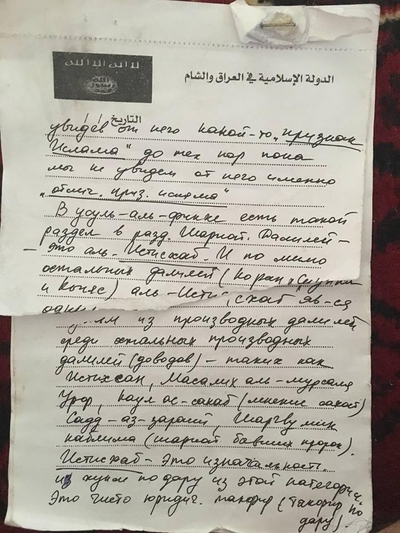 لا اله الا الله
الله
رسول
محمد
الدولة الإسلامية في العراق والشام
التاريخ
увидев от него какой-то "признак
Ислама" до тех пор пока
мы не увидем от него именно
"отлич. приз. ислама"
В усуль-аль-фикхе есть такой
раздел в разд. Шариат. Далилей -
это аль-Истисхаб. И помимо
остальных далилей (Коран, Сунна
и Кыяс) аль-Истисхаб яв-ся
из производных далилей
среди остальных производных
далилей (доводов) - таких как
Истихсан, Масалих аль-мурсаля
Урф, Кауль ас-сахаб (мнение сахаб)
Садд-аз-зараий, Шаргъу ман
каблина (шариат бывших пророк).
Истисхаб - это изначальность.
и хукм по дару из этой категории.
Это чисто юридич. такфир (такфир по
дару).